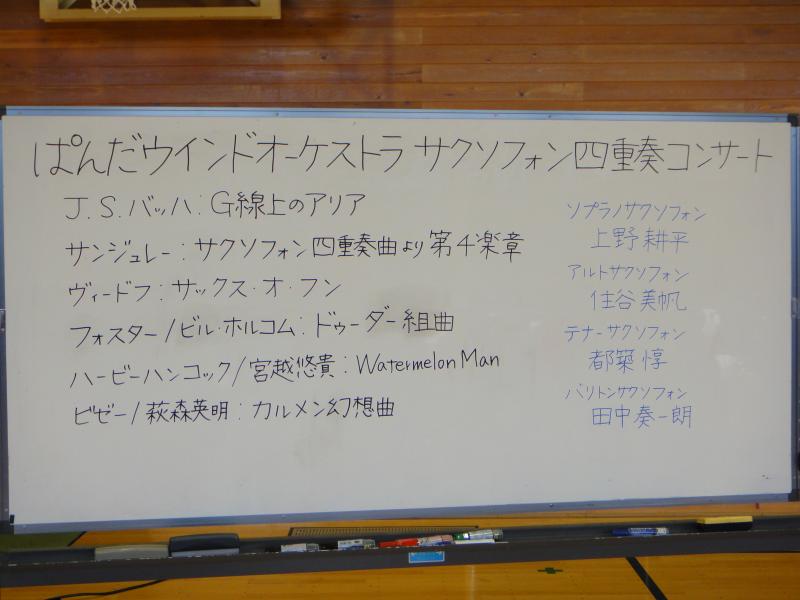 ぱんだウインドオーケストラ サクソフォン四重奏コンサート
J.S.バッハ:G線上のアリア
サンジュレー:サクソフォン四重奏曲より第4楽章
ヴィードフ:サックス・オ・フン
フォスター/ビル・ホルコム:ドゥーダー組曲
ハービーハンコック/宮越悠貴:Watermelon Man
ビゼー/萩森英明:カルメン幻想曲
ソプラノサクソフォン
上野耕平
アルトサクソフォン
住谷美帆
テナーサクソフォン
都築惇
バリトンサクソフォン
田中奏一朗